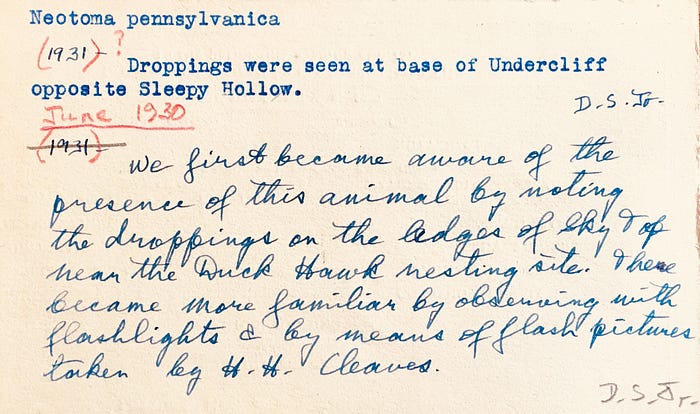 Neotoma pennsylvanica
(1931) ?
Droppings were seen at base of Undercliff
opposite Sleepy Hollow.
D.S.Jr.
June 1930
(1931)
We first became aware of the
presence of this animal by noting
the droppings on the ledges of Sky Top
near the Duck Hawk nesting site. There
became more familiar by observing with
flashlights & by means of flash pictures
taken by H.H. Cleaves.
D.S.Jr.